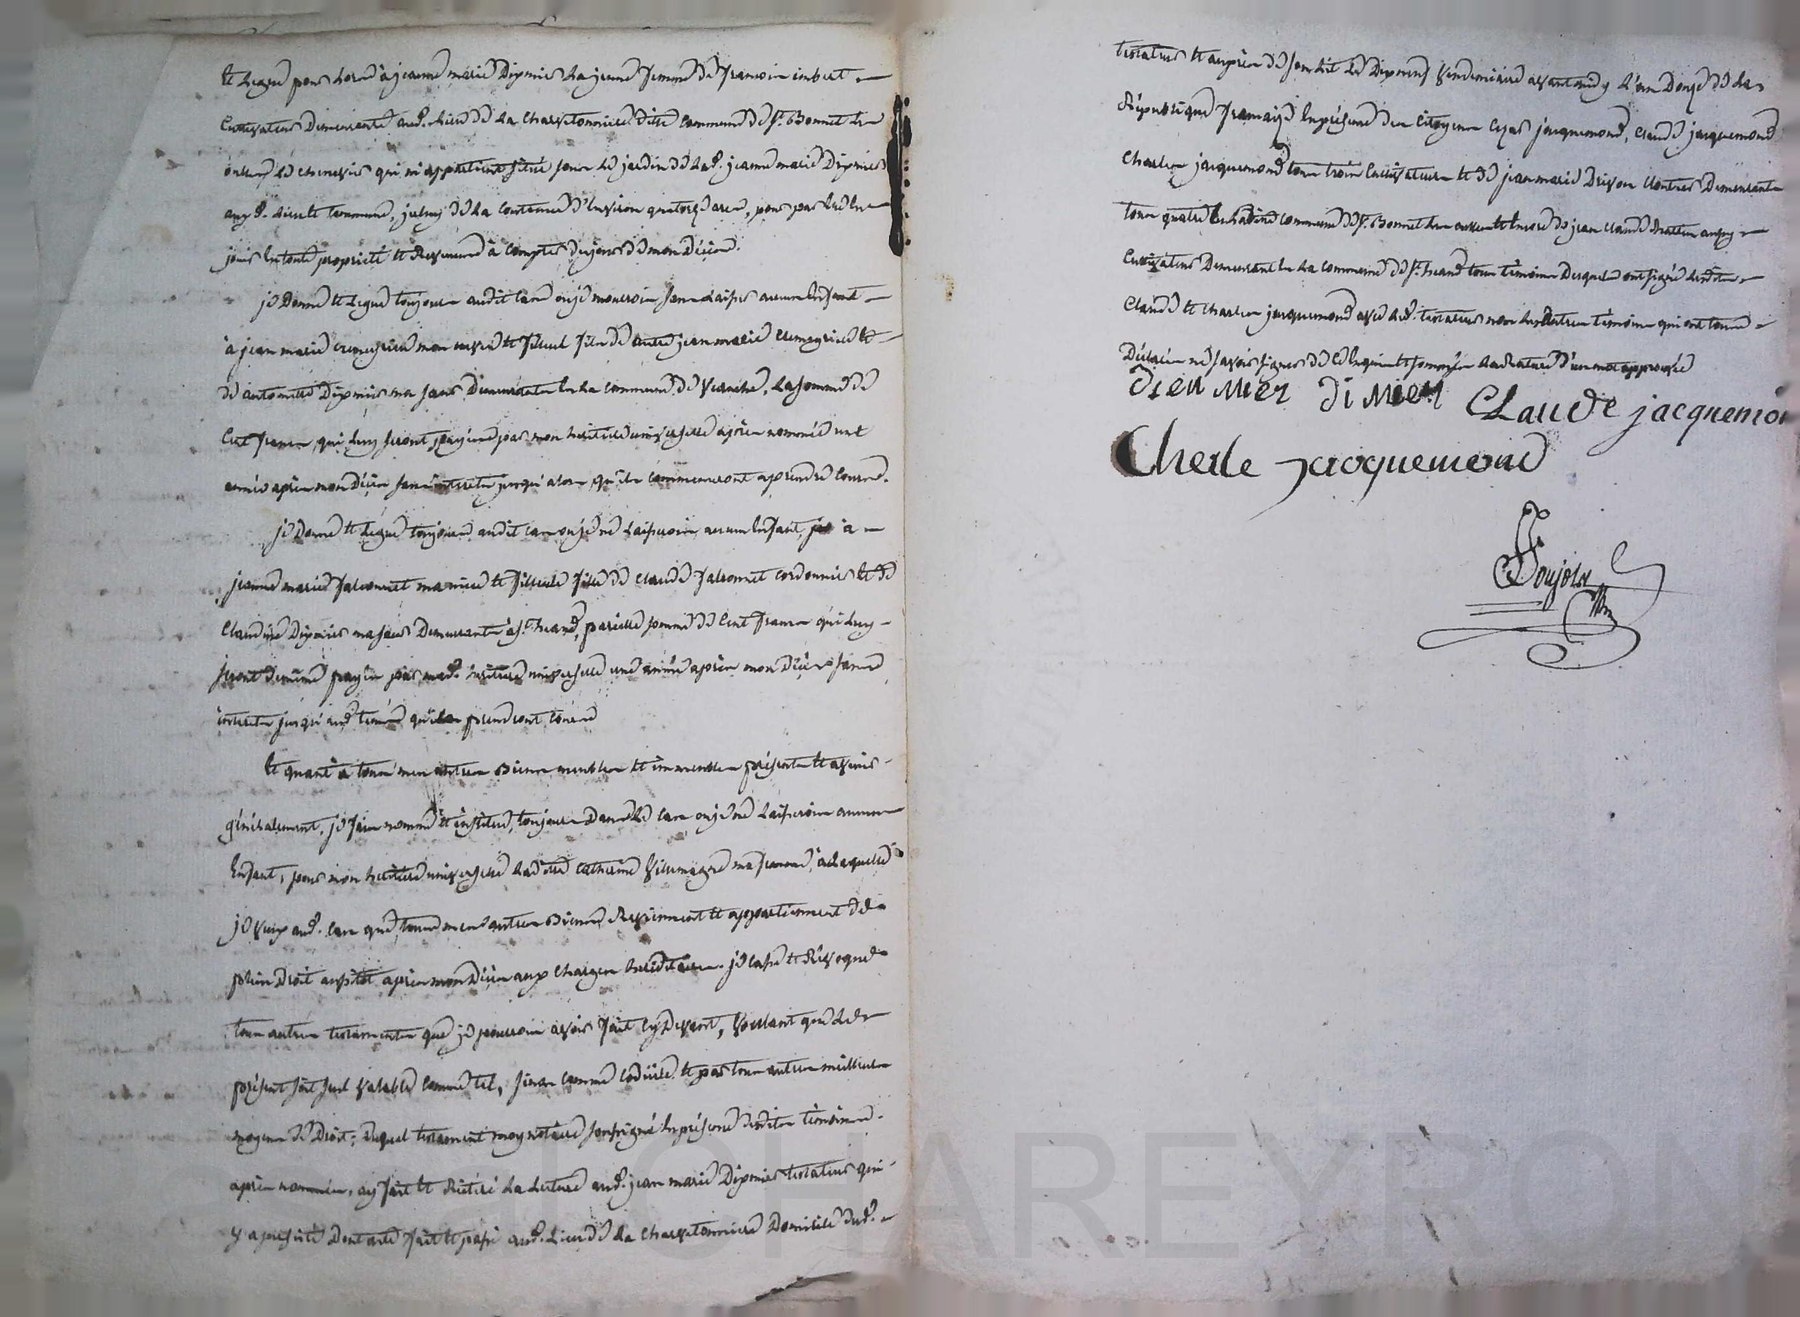 et legue pour lors à jeanne marie Dipmier la jeune femme de francois imbert
Cultivateur Demeurante aud. lieu de la Charvetonniere dite Commune de St. Bonnet les
oules, le chenevis qui m'appartient situé sous le jardin de lad. jeanne marie Dipmier
auxd. lieu et Commune, de la Contenue d'environ quatorze ares, pour par elle en
jouir en toute propriété et à compter du jour de mon Décès.
je Donne et legue toujours audit Cas ou je mourrois sans laisser aucun enfant
à jean marie mon neveu et filleul fils de autre jean marie et
de antoinette Dipmier ma soeur Demeurante en la commune de Veauche, la somme de
Cent francs, qui luy seront payés par mon heritiere universelle après nommée une
année après mon Décès sans interets jusqu'alors qu'ils commenceront a prendre Cours.
je Donne et legue toujours audit Cas ou je ne laisserois aucun enfant, à
jeanne marie falconnet ma niece et filleule fille de Claude falconnet cordonnier et de
Claudine Dipmier ma soeur Demeurante à St. heand, pareille somme de Cent francs qui luy
seront de même payés par mad. heritiere universelle une année après mon Décès sans
interets jusqu'aud. terme qu'ils prendront Cours
Et quant à tous mes autres Biens meubles et immeubles présents et avenir
généralement, je fais nomme et institue, toujours Dans le Cas ou je ne laisserois aucun
Enfant, pour mon heritiere universelle ladite Catherine Villemagne ma femme, à laquelle
je veux aud. Cas que tous mes autres Biens Reviennent et appartiennent de
plein Droit aussitot après mon Décès aux Charges hereditaires. je casse et Révoque
tous autres testaments que je pourrois avoir fait cy Devant, Voullant que le
présent soit seul Valable comme tel, sinon comme Codicile et par tous autres meilleurs
moyens de Droit; Duquel testament moy notaire soussigné En présence desdits témoins
après nommés, ay fait et Réitéré la lecture aud. jean marie Dipmier testateur qui
y a persisté Dont acte fait et passé aud. Lieu de la Charvetonniere Domicile dud.
testateur et auprès de son lit le Dix neuf Vendemiaire avant midy l'an Douze de la
République française En présence des Citoyens jacquemond, Claude jacquemond
Charles jacquemond tous trois Cultivateurs et de jean marie Drivon Demeurants
tous quatre commune de St. Bonnet les oules et encore de jean Claude aussy
Cultivateur Demeurant En la commune de St. heand tous témoins Desquels ont signé lesdits
Claude et Charles jacquemond avec led. testateur non les autres témoins qui ont tous
Déclarés ne savoir signer de ce Enquis et sommés la Rature d'un mot approuvée
Dien Mier Di Mier Claude jacquemon
Cherle jacquemond
Poujol
CHAREYRON